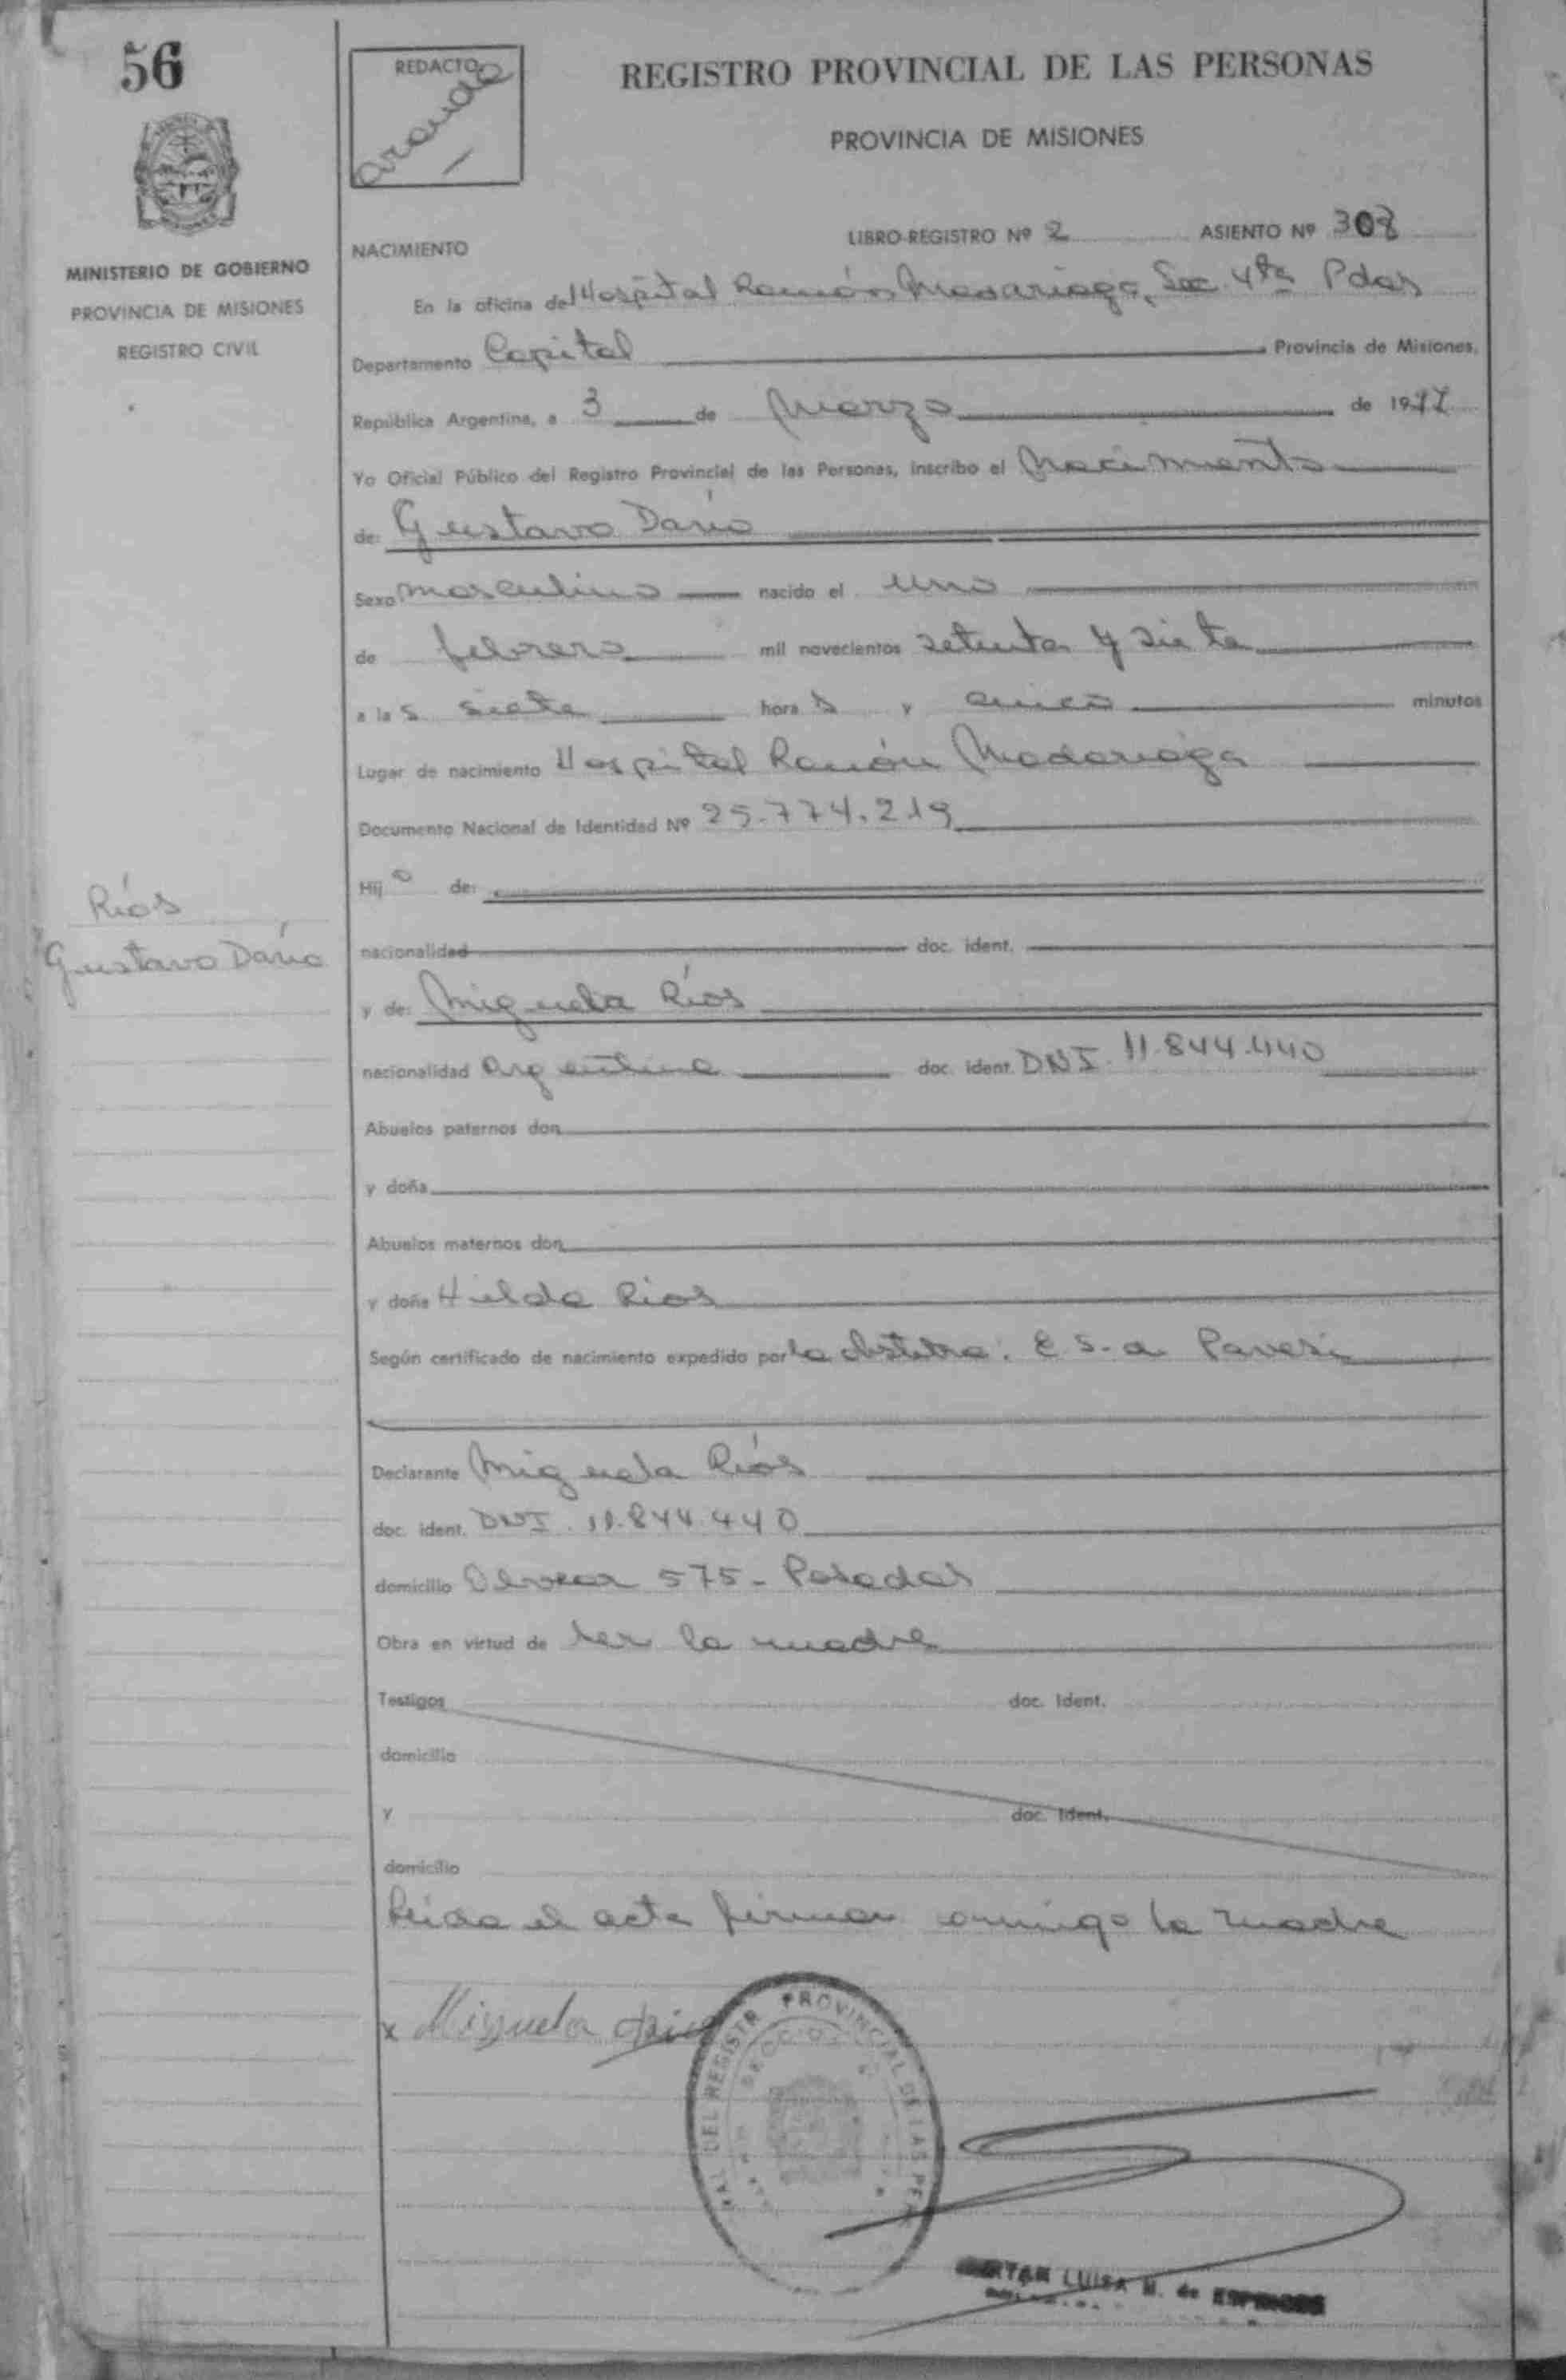 56
REDACTO
Aranda
REGISTRO PROVINCIAL DE LAS PERSONAS
PROVINCIA DE MISIONES
MINISTERIO DE GOBIERNO
PROVINCIA DE MISIONES
REGISTRO CIVIL
LIBRO-REGISTRO Nº 2 ASIENTO Nº 308
NACIMIENTO
En la oficina del Hospital Ramón Madariaga, Sec. 4ta Pdas
Departamento Capital Provincia de Misiones,
República Argentina, a 3 de Marzo de 1977
Yo Oficial Público del Registro Provincial de las Personas, inscribo el Nacimiento
de: Gustavo Darío
Sexo masculino nacido el uno
de febrero mil novecientos setenta y siete
a las siete horas y cinco minutos
Lugar de nacimiento Hospital Ramón Madariaga
Documento Nacional de Identidad Nº 25.774.219
Hijo de:
Ríos
Gustavo Darío
nacionalidad doc. ident.
y de: Miguela Ríos
nacionalidad argentina doc. ident. DNI. 11.844.440
Abuelos paternos don
y doña
Abuelos maternos don
y doña Hilda Rios
Según certificado de nacimiento expedido por la obstetra: E. S. a Pavesi
Declarante Miguela Ríos
doc. ident. DNI. 11.844.440
domicilio 575- Posadas
Obra en virtud de ser la madre
Testigos doc. Ident.
domicilio
y doc. Ident.
domicilio
Leída el acta firma conmigo la madre
x Miguela Rios
DEL REGISTR PROVINCIAL DE LAS PER
LUISA M. de